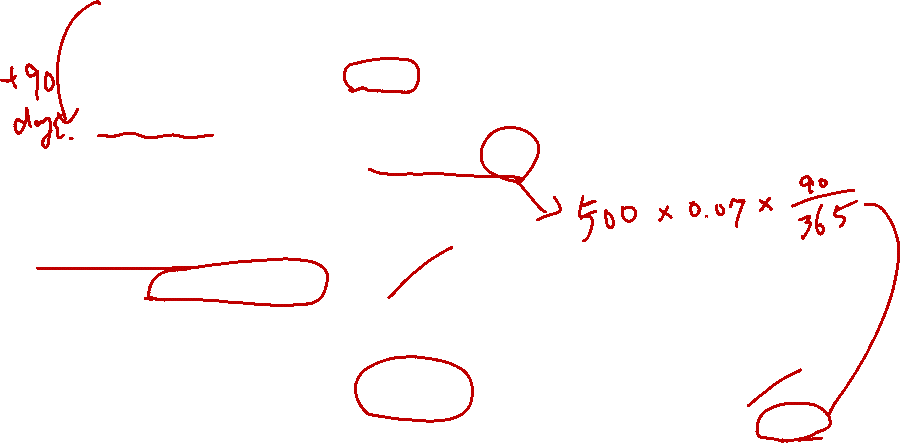 +90
days.
500 × 0.07 × 90/365